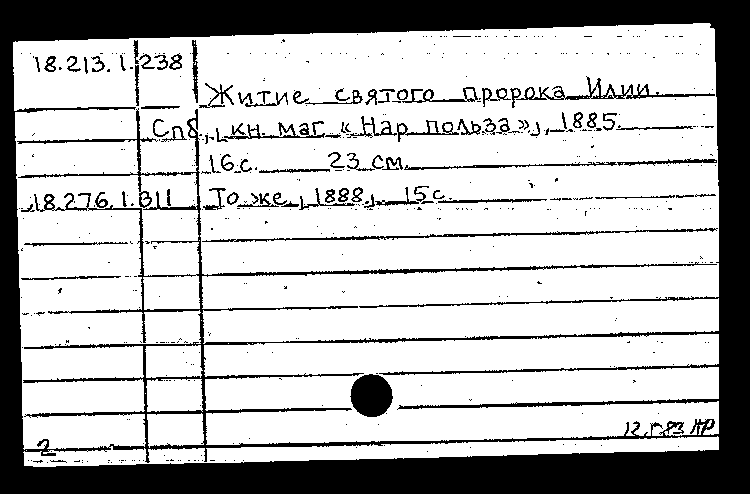 18.213.1.238
Житие святого пророка Илии.
Спб, кн. маг. «Нар. польза», 1885.
16 с. 23 см.
18.276.1.311 То же, 1888, 15 с.
2